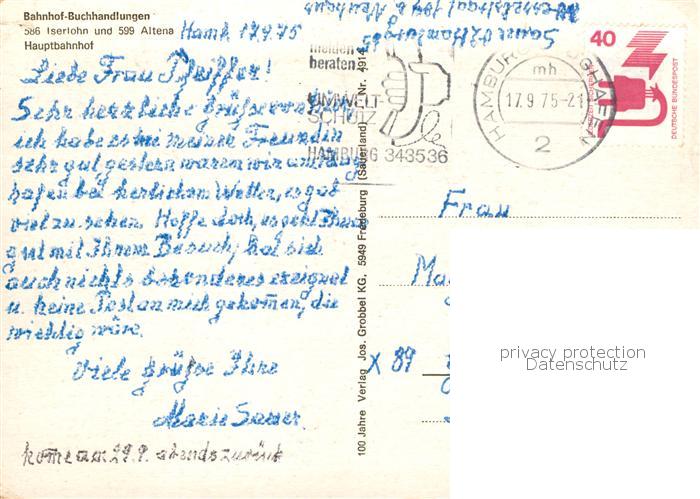 Bahnhof-Buchhandlungen
586 Iserlohn und 599 Altena
Hauptbahnhof
Hamb 17.9.75
Liebe Frau Pfeiffer!
Sehr herzliche Grüsse von hier
ich habe es bei meiner Freundin
sehr gut gestern waren wir am Flug
hafen bei herlichem Wetter, es gab
viel zu sehen. Hoffe doch, es geht Ihnen
gut mit Ihrem Besuch, hat sich
auch nichts besonderes ereignet
u. keine Post an mich gekomen, die
wichtig wäre.
Viele Grüsse Ihre
Marie Sauer
kome am 29.9. abends zurück
Sauer
melden
beraten
UMWELT-
SCHUTZ
HAMBURG 343536
HAMBURG
mh
17.9.75-21
2
40
DEUTSCHE BUNDESPOST
100 Jahre Verlag Jos. Grobbel KG, 5949 Fredeburg (Sauerland) Nr. 4914
Frau
Ma
X 89
privacy protection
Datenschutz